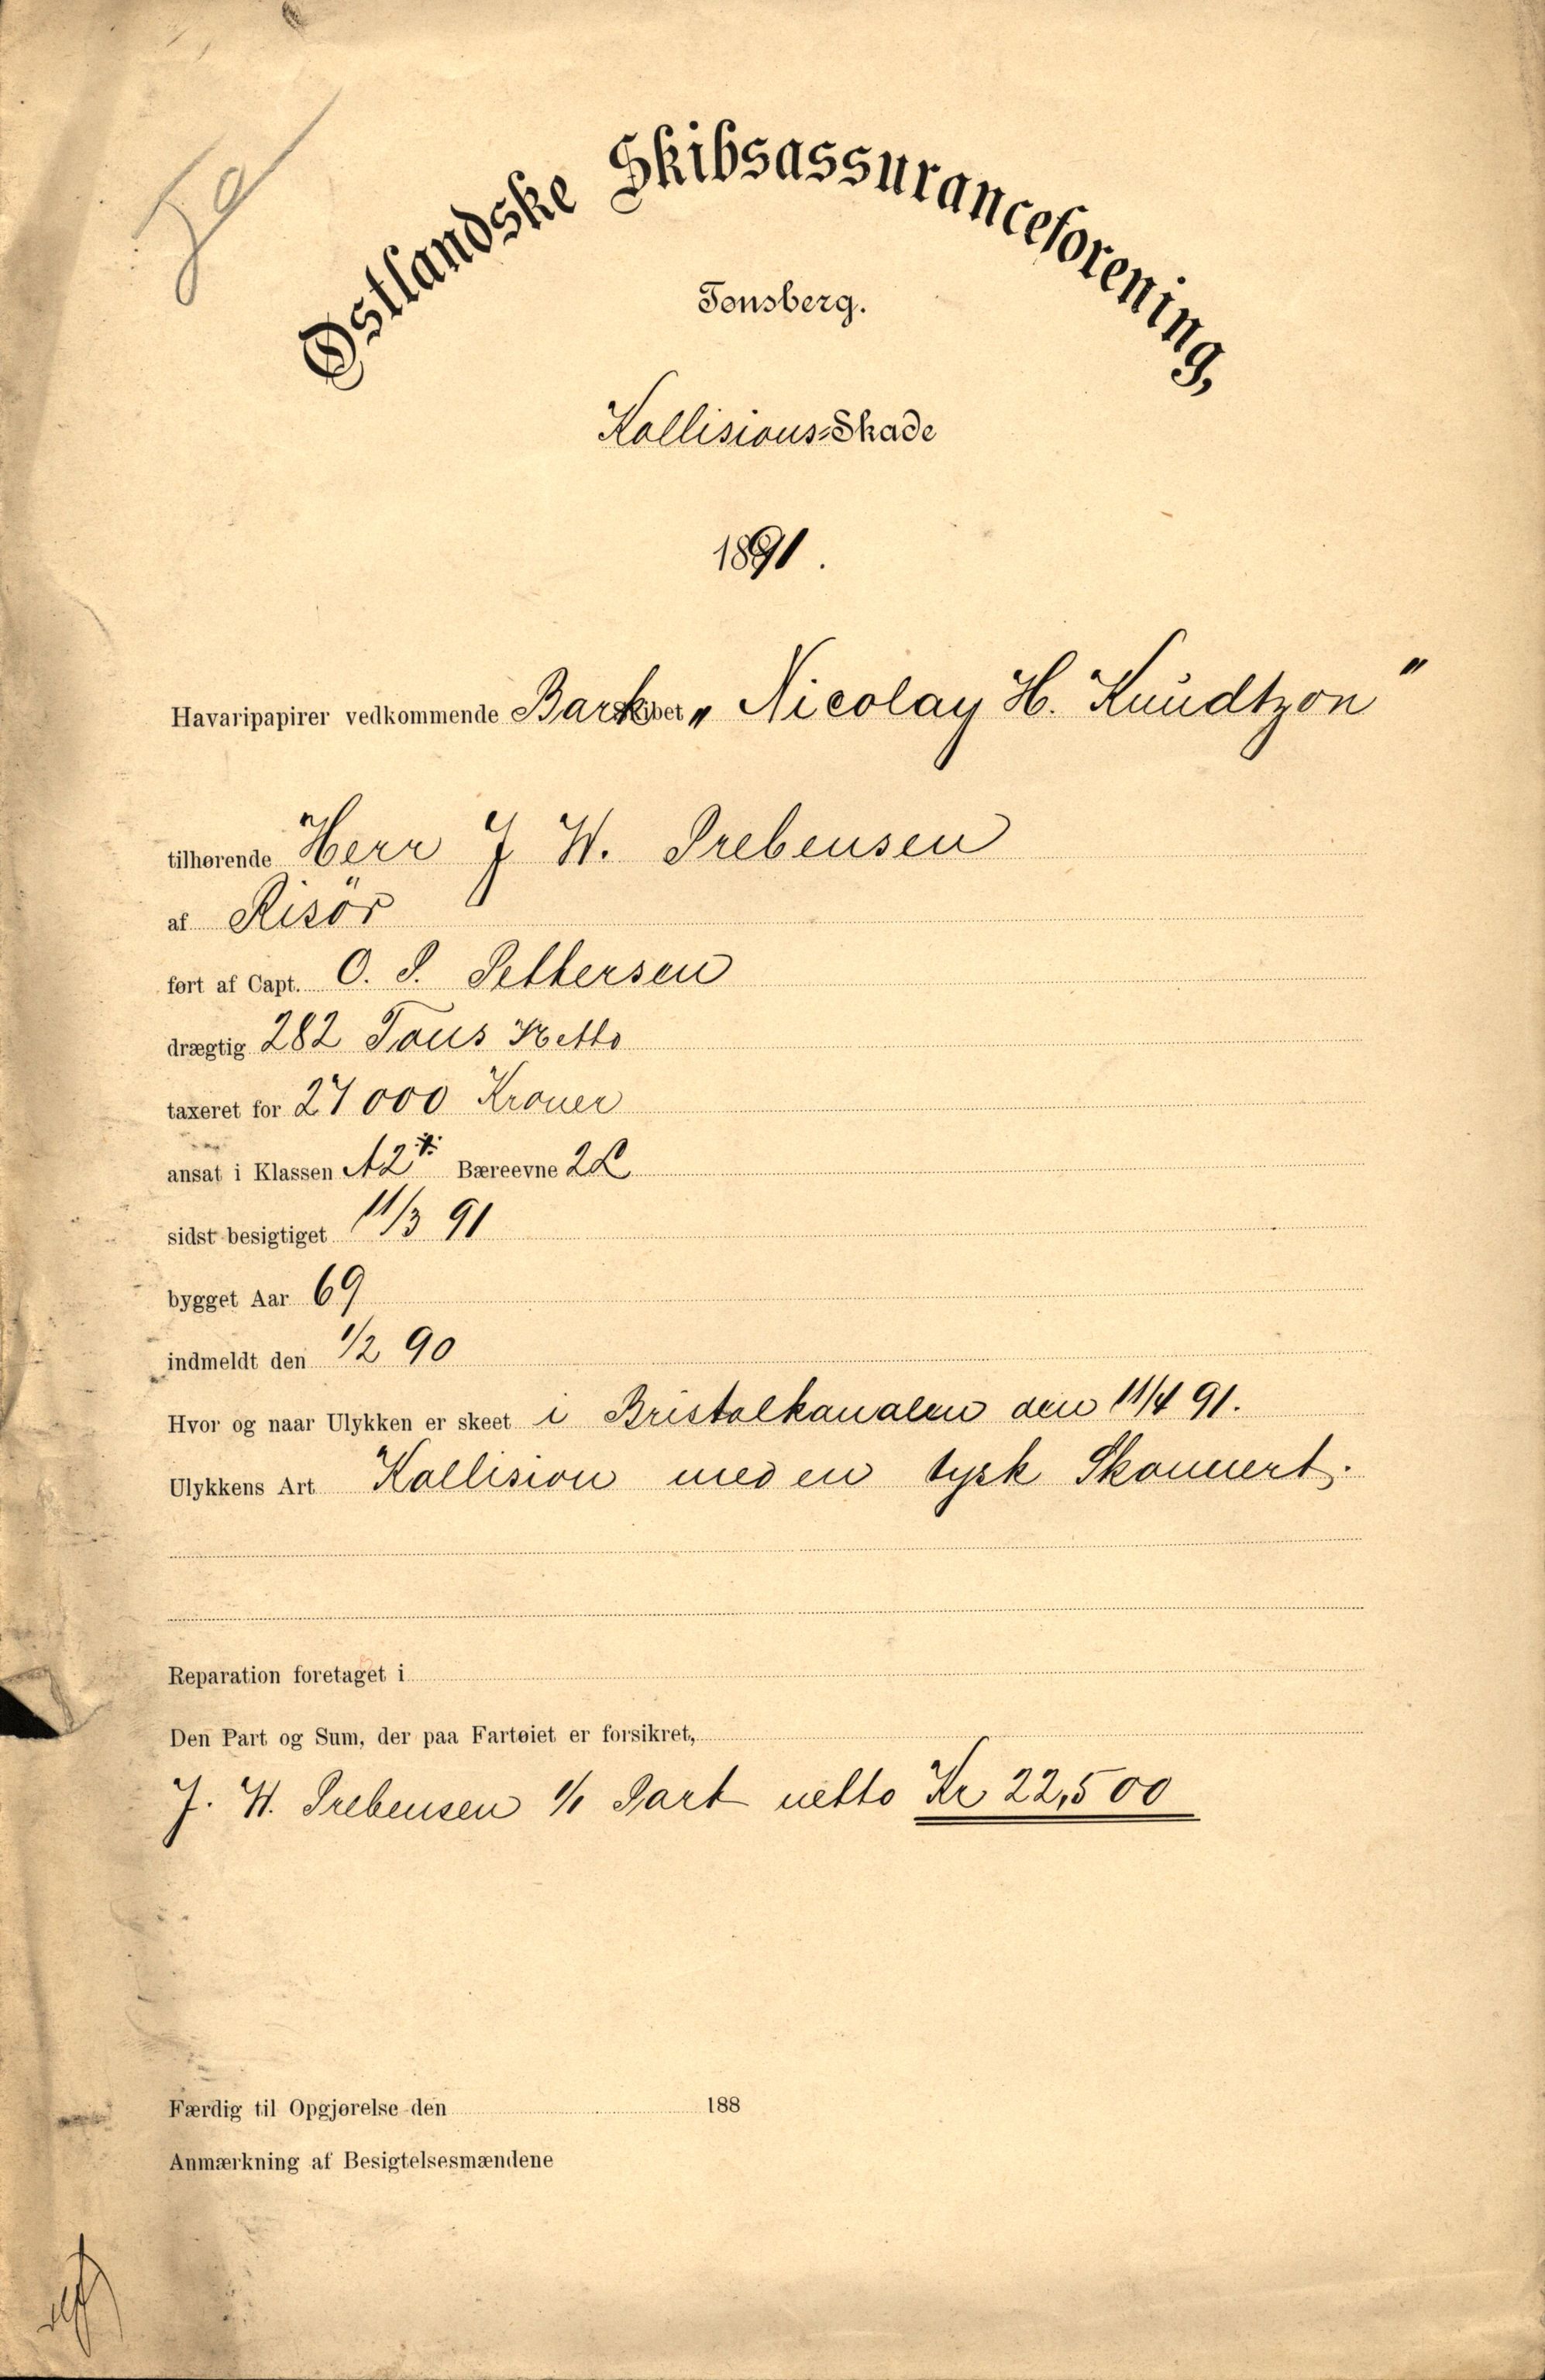 Østlandske Skibsassuranceforening,
Tønsberg.
Kollisions-Skade
1891.
Havaripapirer vedkommende Bark „Nicolay H. Knudtzon"
tilhørende Herr J W. Prebensen
af Risör
ført af Capt. O. P. Pettersen
drægtig 282 Tons Netto
taxeret for 27000 Kroner
ansat i Klassen A2 Bæreevne 2L
sidst besigtiget 11/3 91
bygget Aar 69
indmeldt den 1/2 90
Hvor og naar Ulykken er skeet i Bristolkanalen den 11/4 91.
Ulykkens Art Kollision med en tysk Skonnert.
Reparation foretaget i
Den Part og Sum, der paa Fartøiet er forsikret,
J. W. Prebensen 1/1 Part netto Kr 22,500
Færdig til Opgjørelse den 188
Anmærkning af Besigtelsesmændene